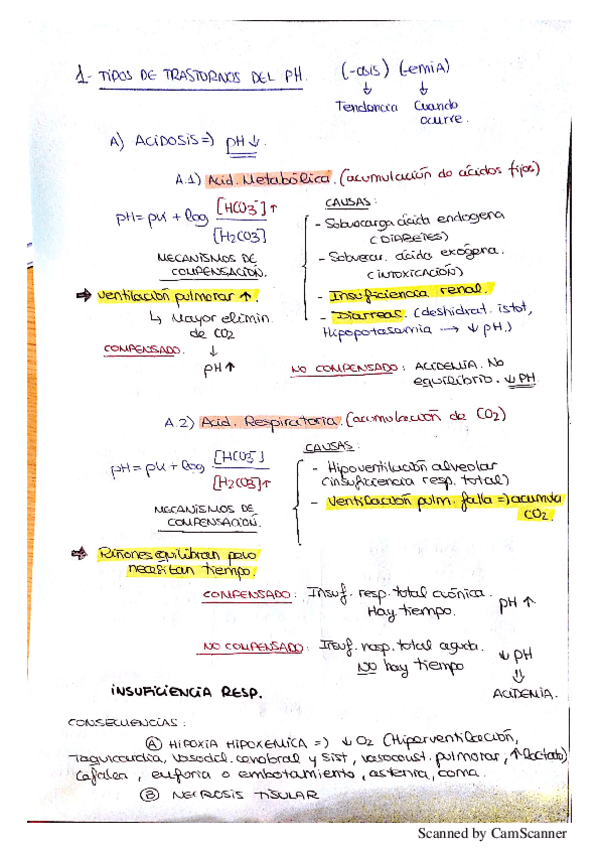 1- TIPOS DE TRASTORNOS DEL PH. (-osis) (-emiA)
↓ ↓
Tendencia Cuando ocurre.
A) ACIDOSIS => pH↓.
A.1) Acid. Metabólica. (acumulación de ácidos fijos)
pH = pK + log [HCO3⁻]↑ / [H2CO3]
MECANISMOS DE COMPENSACIÓN.
⇒ Ventilación pulmonar ↑.
↳ Mayor elimin. de CO2
COMPENSADO. ↓
pH↑
CAUSAS:
- Sobrecarga ácida endogena (DIABETES)
- Sobrecar. ácida exógena. (INTOXICACIÓN)
- Insuficiencia renal.
- Diarreas. (deshidrat. istot, Hipopotasemia → ↓pH.)
NO COMPENSADO: ACIDEMIA. No equilibrio. ↓PH
A.2) Acid. Respiratoria. (acumulación de CO2)
pH = pK + log [HCO3⁻] / [H2CO3]↑
MECANISMOS DE COMPENSACIÓN.
CAUSAS:
- Hipoventilación alveolar (insuficiencia resp. total)
- Ventilación pulm. falla => acumula CO2.
⇒ Riñones equilibran pero necesitan tiempo.
COMPENSADO: Insuf. resp. total crónica. Hay tiempo. pH↑
NO COMPENSADO: Insuf. resp. total aguda. NO hay tiempo ↓pH
⇓
ACIDEMIA.
INSUFICIENCIA RESP.
CONSECUENCIAS:
Ⓐ HIPOXIA HIPOXEMICA => ↓O2 (Hiperventilación,
Taquicardia, vasodil. cerebral y sist, vasoconst. pulmonar, ↑lactato)
cefalea, euforia o embotamiento, astenia, coma.
Ⓑ NECROSIS TISULAR
Scanned by CamScanner